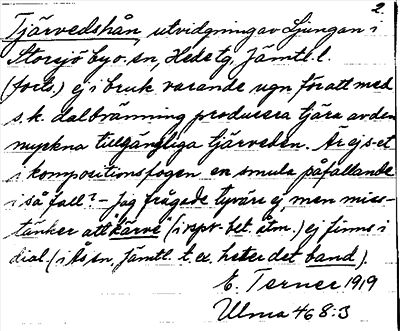 2.
Tjärvedshån, utvidgning av Ljungan i
Storsjö by o. sn, Hede tg, Jämtl. l.
(forts.) ej i bruk varande ugn för att med
s.k. dalbränning producera tjära av den
myckna tillgängliga tjärveden. Är ej s-et
i kompositionsfogen en smula påfallande
i så fall? - Jag frågade tyvärr ej, men miss-
tänker att "kärve" (i resp. bet. åtm.) ej finns i
dial. (i Ås sn, Jämtl. t. ex. heter det band).
E. Terner 1919
Ulma 468:3